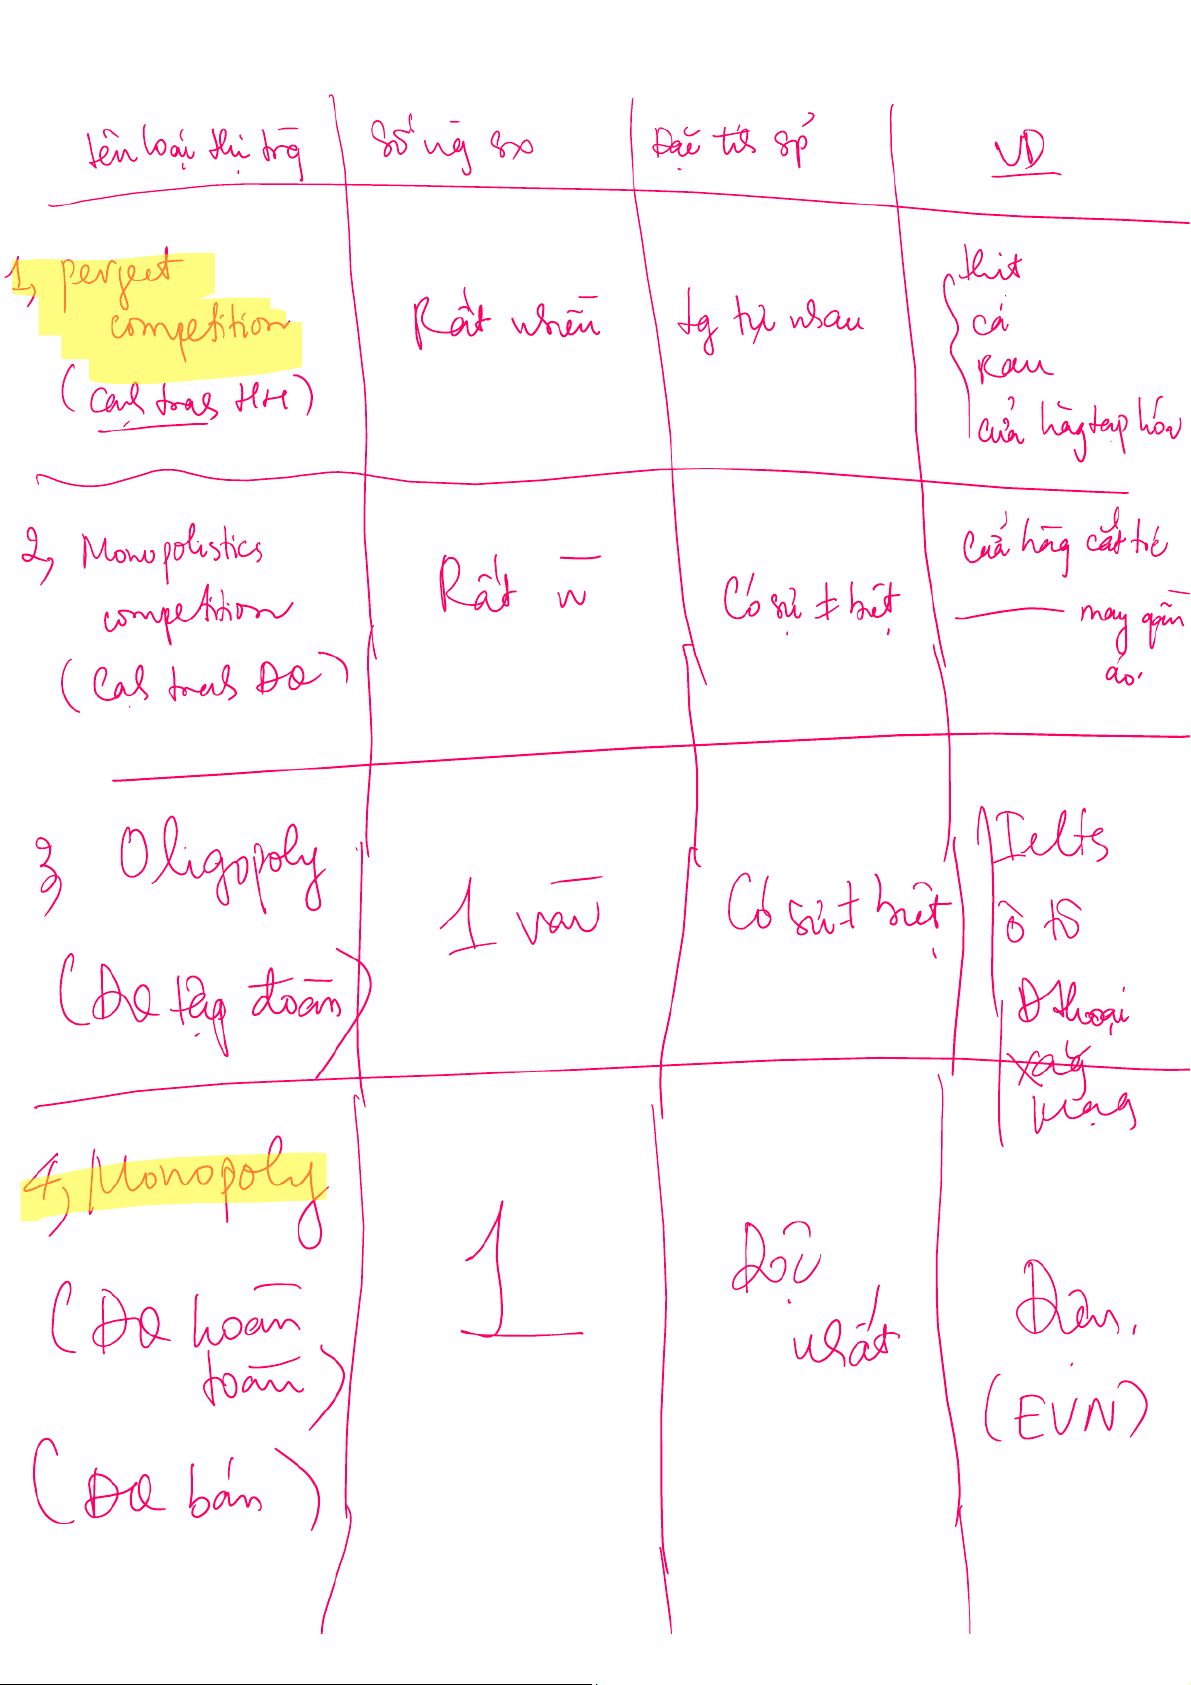 tên loại thị trg
số ng sx
Đặc tih sp
VD
1, perfect
competition
(cạh trah HH)
Rất nhiều
tg tự nhau
thit
cá
Rau
cửa hàng tạp hóa
2, Monopolistics
competition
(cạh trah ĐQ)
Rất n̄
Có sự ≠ biệt
Cửa hàng cắt tóc
may quần
áo
3, Oligopoly
(ĐQ tập đoàn)
1 vài
Có sự ≠ biệt
Ielts
ô tô
Đ thoại
xăng
mạng
4, Monopoly
(ĐQ hoàn
toàn)
(ĐQ bán)
1
Độc
nhất
Điện.
(EVN)